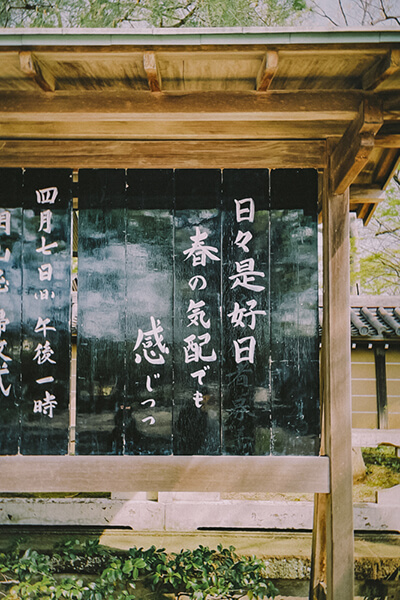 日々是好日
春の気配でも
感じつつ
四月七日㈰午後一時